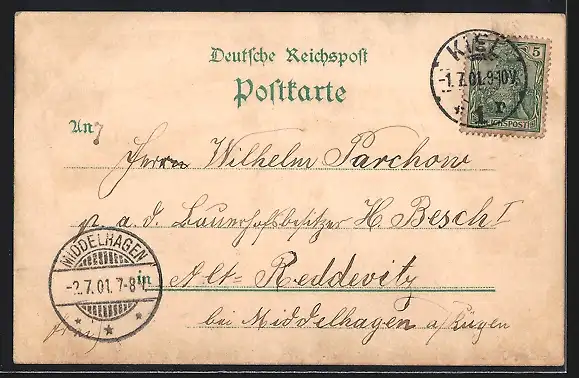 Deutsche Reichspost
Postkarte
KIEL
-1.7.01.9-10V.
1
5
REICHSPOST
An
Herrn Wilhelm Parchow
p. a. d. Bauerhofsbesitzer H. Besch I
in Alt-Reddevitz
bei Middelhagen a/Rügen
MIDDELHAGEN
-2.7.01. 7-8V.